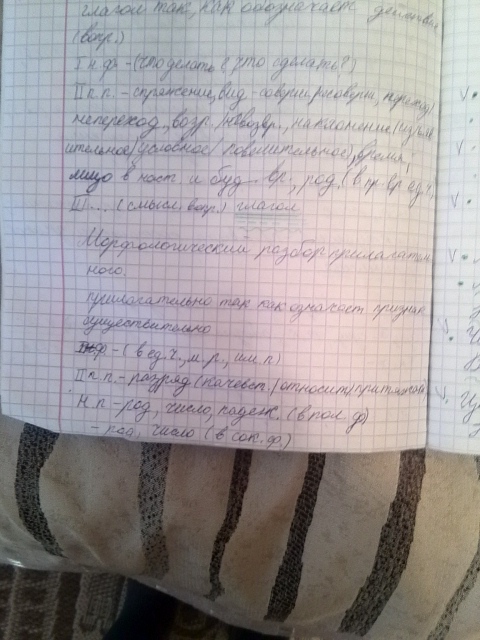 глагол так, как обозначает действие
(вопр.)
I н.ф. - (что делать?, что сделать?)
II п.п. - спряжение, вид - соверш/несоверш, переход/
непереход, возр/невозвр., наклонение (изъяв
ительное/условное/повелительное), время,
лицо в наст. и буд. вр., род (в пр. вр. ед.ч.)
III ... (смысл. вопр.) глагол
Морфологический разбор прилагатель
ного.
прилагательно так как означаст признак
существительно
н.ф - (в ед.ч., м.р., им.п)
II п.п. - разряд (качевст./относит/притяжай
Н.п - род, число, падеж. (в пол. ф)
- род, число (в сок. ф.)